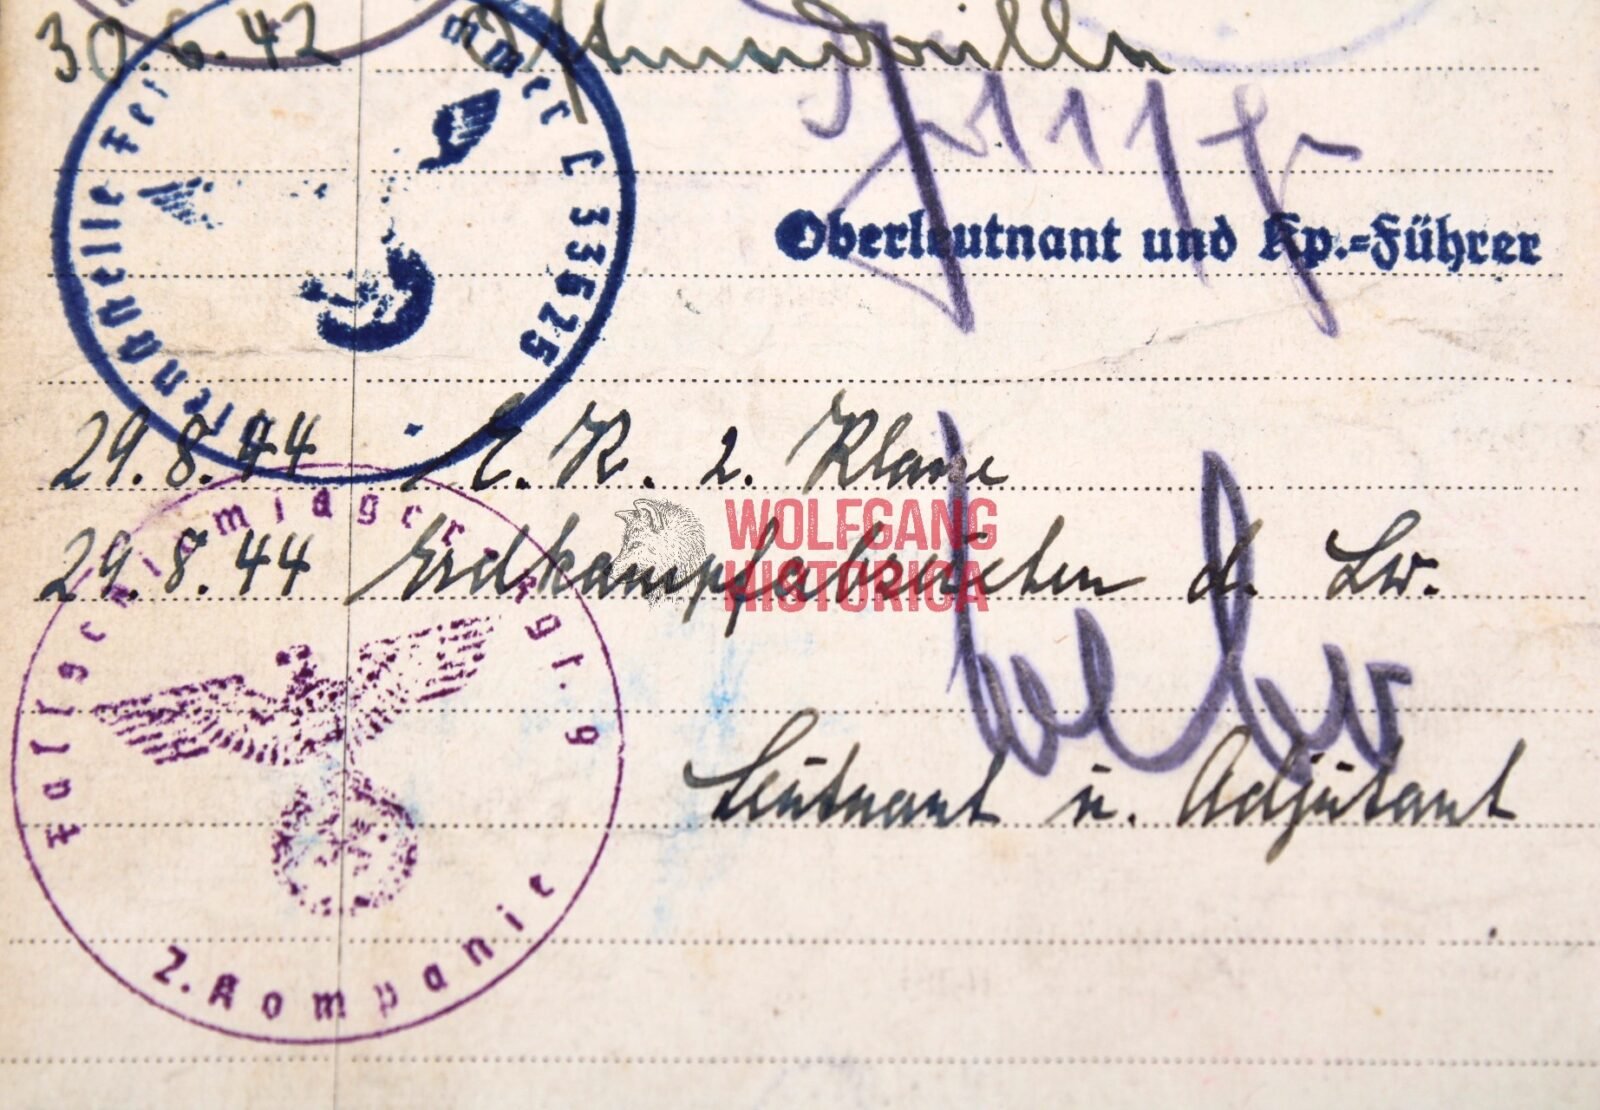 30.6.42
Dienststelle Feldpostnummer L 33625
Oberleutnant und Kp.=Führer
29.8.44 E. K. 2. Klasse
29.8.44 Erdkampfabzeichen d. Lw.
WOLFGANG
HISTORICA
Fallschirmjäger Rgt. 9
2. Kompanie
Leutnant u. Adjutant